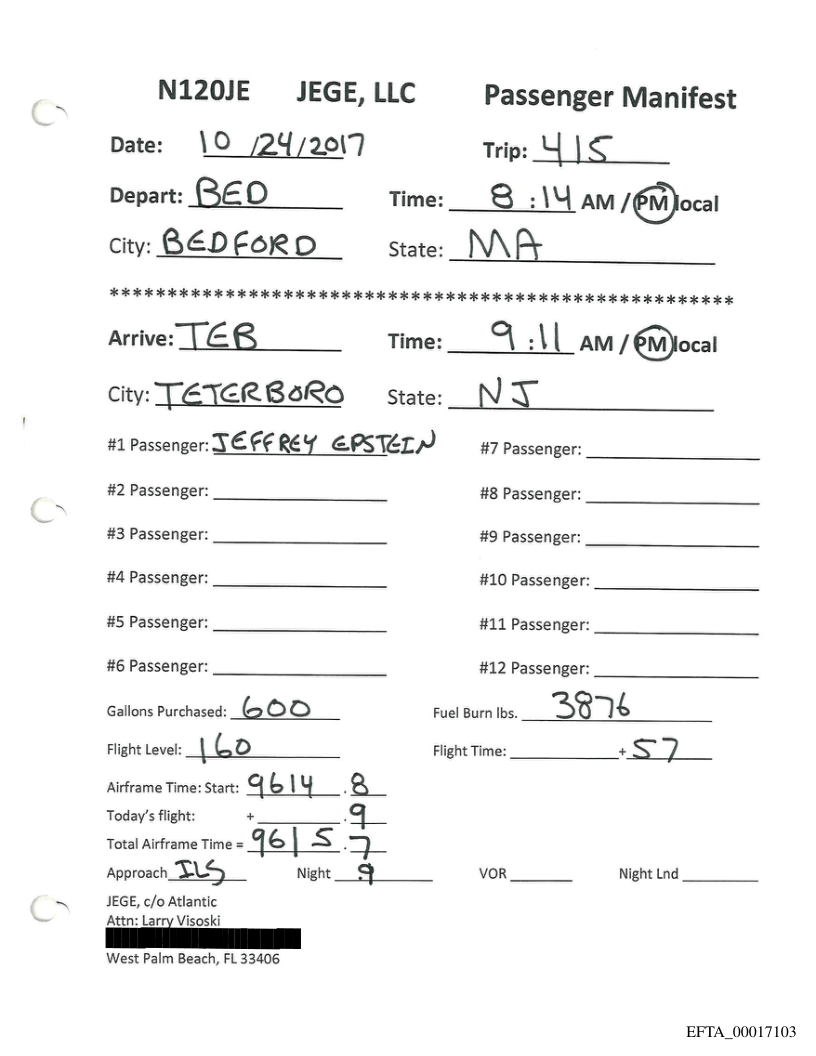 N120JE JEGE, LLC Passenger Manifest
Date: 10 /24/2017 Trip: 415
Depart: BED Time: 8 :14 AM / PM local
City: BEDFORD State: MA
*****************************************************
Arrive: TEB Time: 9 :11 AM / PM local
City: TETERBORO State: NJ
#1 Passenger: JEFFREY EPSTEIN #7 Passenger:
#2 Passenger: #8 Passenger:
#3 Passenger: #9 Passenger:
#4 Passenger: #10 Passenger:
#5 Passenger: #11 Passenger:
#6 Passenger: #12 Passenger:
Gallons Purchased: 600 Fuel Burn lbs. 3876
Flight Level: 160 Flight Time: + 57
Airframe Time: Start: 9614 . 8
Today's flight: + . 9
Total Airframe Time = 9615 . 7
Approach ILS Night .9 VOR Night Lnd
JEGE, c/o Atlantic
Attn: Larry Visoski
West Palm Beach, FL 33406
EFTA_00017103